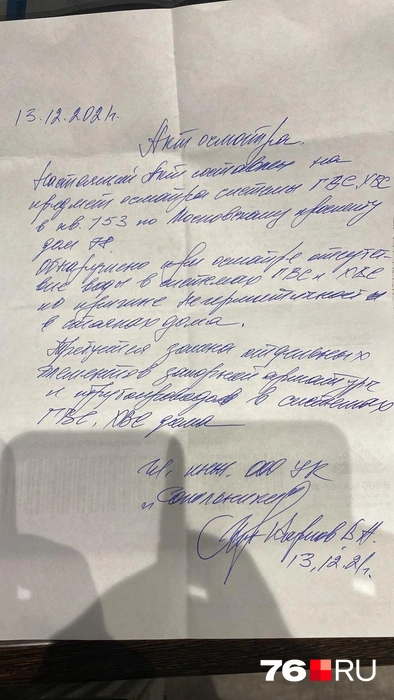 13.12.2021г.
Акт осмотра.
Настоящий Акт составлен на
предмет осмотра системы ГВС, ХВС
в кв. 153 по Московскому проспекту
дом 78
Обнаружено при осмотре отсутст-
вие воды в системах ГВС и ХВС
по причине не герметичности
в стояках дома.
Требуется замена отдельных
элементов запорной арматуры
и трубопроводов в системах
ГВС, ХВС дома
Гл. инж. ООО УК
В.Н.
13.12.21г.
76 RU